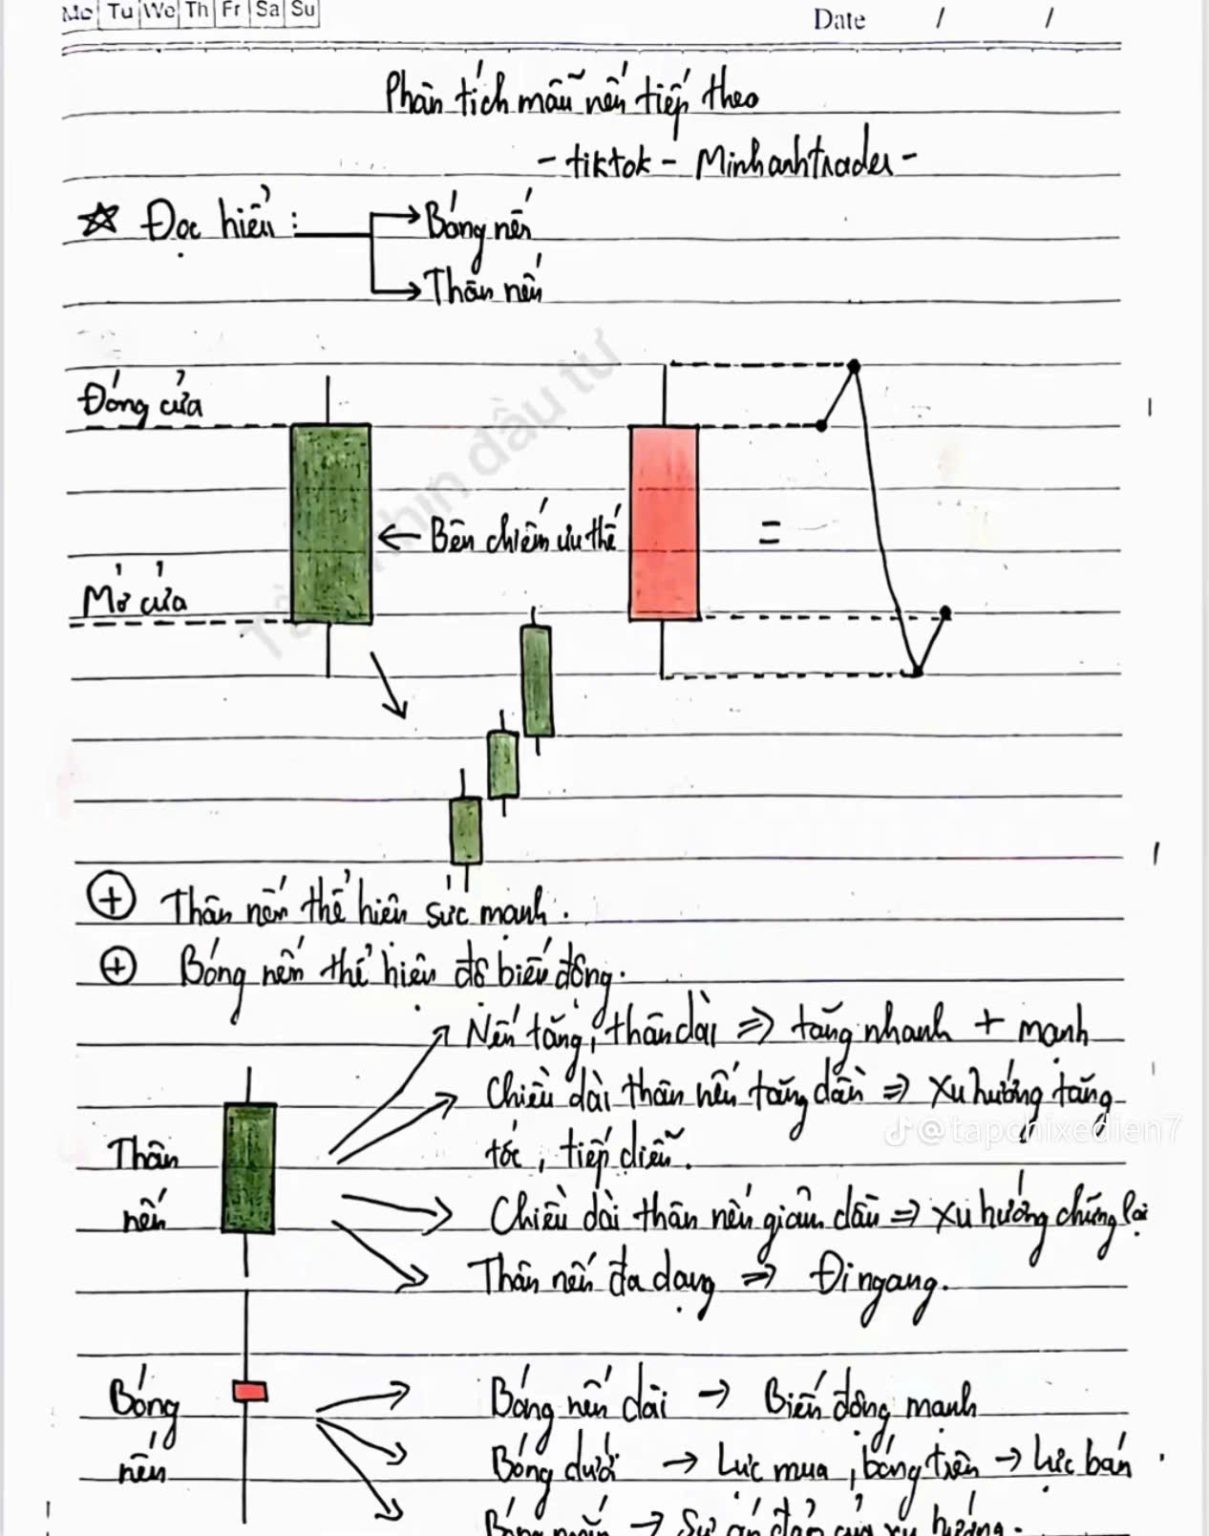 Mo Tu We Th Fr Sa Su
Date / /
Phân tích mẫu nến tiếp theo
- tiktok - Minhanhtrader -
☆ Đọc hiểu :
Bóng nến
Thân nến
Đóng cửa
← Bên chiếm ưu thế
=
Mở cửa
Tầm nhìn đầu tư
⊕ Thân nến thể hiện sức mạnh.
⊕ Bóng nến thể hiện độ biến động.
Nến tăng, thân dài => tăng nhanh + mạnh
Chiều dài thân nến tăng dần => Xu hướng tăng
tốc, tiếp diễn.
@tapchixedien7
Thân
nến
Chiều dài thân nến giảm dần => xu hướng chững lại
Thân nến đa dạng => Đi ngang.
Bóng
nến
Bóng nến dài → Biến động mạnh
Bóng dưới → Lực mua, bóng trên → lực bán
Bóng ngắn → Sự ổn định của xu hướng.